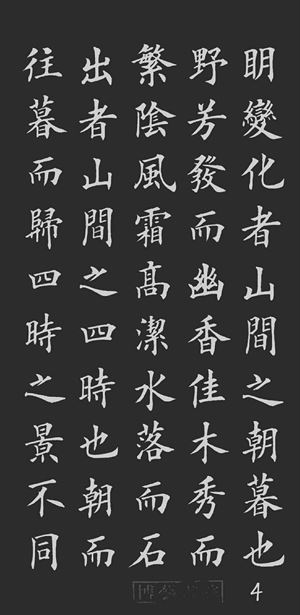 明變化者山間之朝暮也
野芳發而幽香佳木秀而
繁陰風霜高潔水落而石
出者山間之四時也朝而
往暮而歸四時之景不同
4